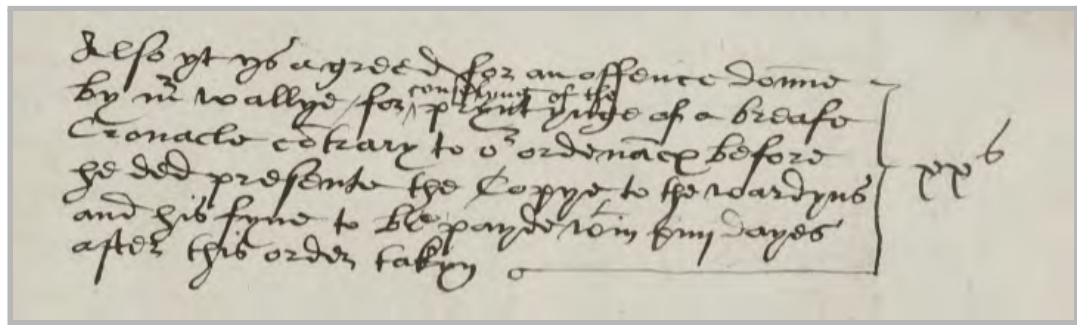 Also yt ys agreed for an offence donne
conselyng of the
by mr wallye for pryntynge of a breafe
Cronacle cōtrary to or ordenāces before xxs
he ded presente the Copye to the wardyns
and his fyne to be payde wtin xiiij dayes
after this order takyn